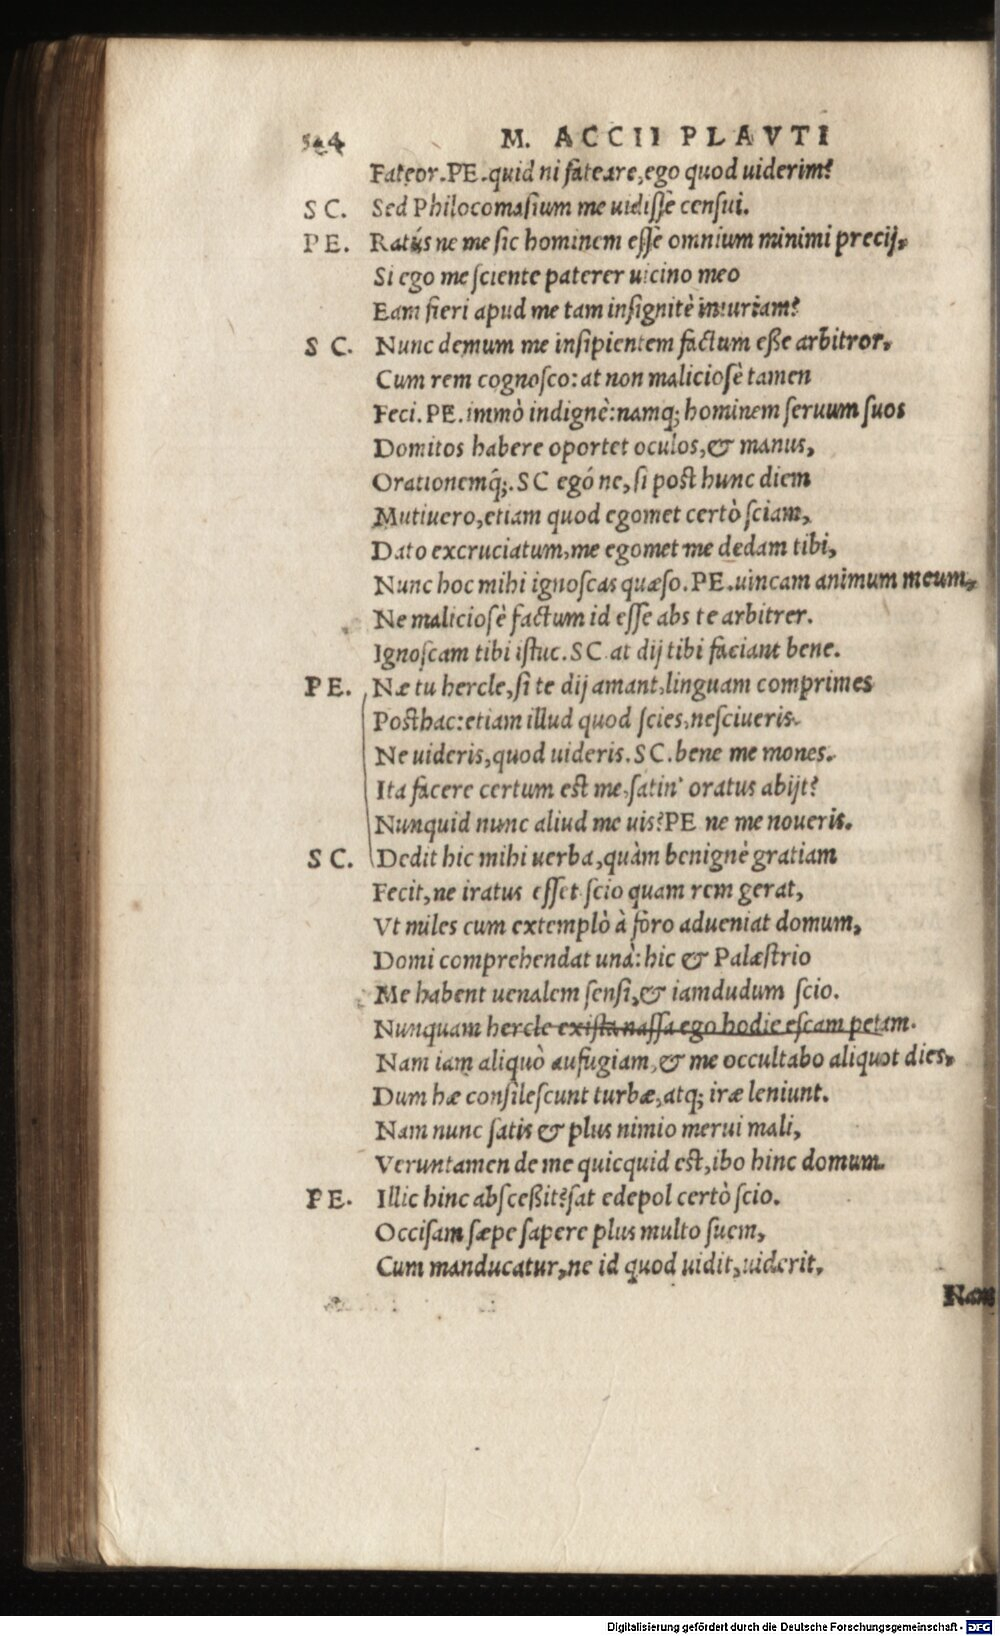 M. ACCII PLAVTI
Fateor. PE. quid ni fateare, ego quod uiderim?
SC. Sed Philocomasium me uidisse censui.
PE. Ratús ne me sic hominem esse omnium minimi precij,
Si ego me sciente paterer uicino meo
Eam fieri apud me tam insignitè iniuriam?
SC. Nunc demum me insipientem factum eße arbitror,
Cum rem cognosco: at non maliciosè tamen
Feci. PE. immò indignè: namq; hominem seruum suos
Domitos habere oportet oculos, & manus,
Orationemq́;. SC egó ne, si post hunc diem
Mutiuero, etiam quod egomet certò sciam,
Dato excruciatum, me egomet me dedam tibi,
Nunc hoc mihi ignoscas quæso. PE. uincam animum meum,
Ne maliciosè factum id esse abs te arbitrer.
Ignoscam tibi istuc. SC at dij tibi faciant bene.
PE. Næ tu hercle, si te dij amant, linguam comprimes
Posthac: etiam illud quod scies, nesciueris.
Ne uideris, quod uideris. SC. bene me mones.
Ita facere certum est me, satin' oratus abijt?
Nunquid nunc aliud me uis? PE ne me noueris.
SC. Dedit hic mihi uerba, quàm benignè gratiam
Fecit, ne iratus esset scio quam rem gerat,
Vt miles cum extemplò à foro adueniat domum,
Domi comprehendat unà: hic & Palæstrio
Me habent uenalem sensi, & iamdudum scio.
Nunquam hercle exista nassa ego hodie escam petam.
Nam iam aliquò aufugiam, & me occultabo aliquot dies,
Dum hæ consilescunt turbæ, atq; iræ leniunt.
Nam nunc satis & plus nimio merui mali,
Veruntamen de me quicquid est, ibo hinc domum.
PE. Illic hinc absceßit? sat edepol certò scio.
Occisam sæpe sapere plus multo suem,
Cum manducatur, ne id quod uidit, uiderit,
Nam
Digitalisierung gefördert durch die Deutsche Forschungsgemeinschaft - DFG